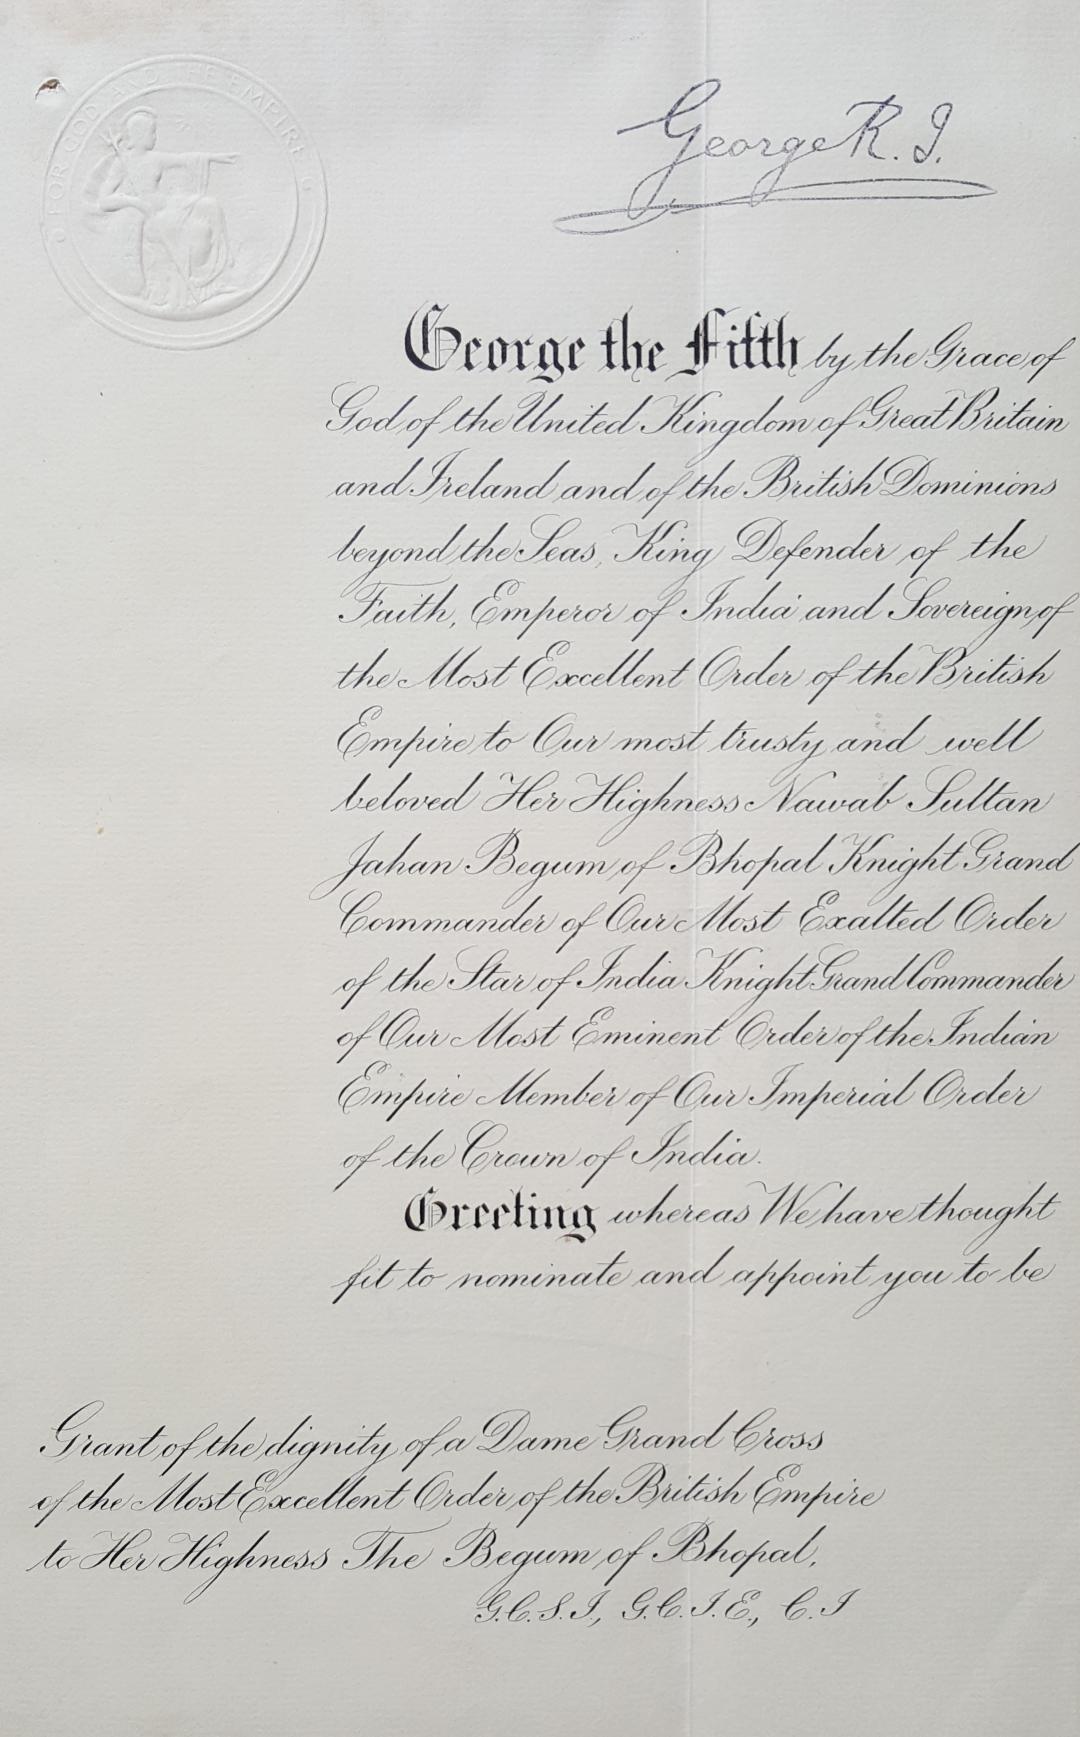 FOR GOD AND THE EMPIRE
George R.I.
George the Fifth by the Grace of
God of the United Kingdom of Great Britain
and Ireland and of the British Dominions
beyond the Seas, King Defender of the
Faith, Emperor of India and Sovereign of
the Most Excellent Order of the British
Empire to Our most trusty and well
beloved Her Highness Nawab Sultan
Jahan Begum of Bhopal Knight Grand
Commander of Our Most Exalted Order
of the Star of India Knight Grand Commander
of Our Most Eminent Order of the Indian
Empire Member of Our Imperial Order
of the Crown of India.
Greeting whereas We have thought
fit to nominate and appoint you to be
Grant of the dignity of a Dame Grand Cross
of the Most Excellent Order of the British Empire
to Her Highness The Begum of Bhopal,
G.C.S.I., G.C.I.E., C.I